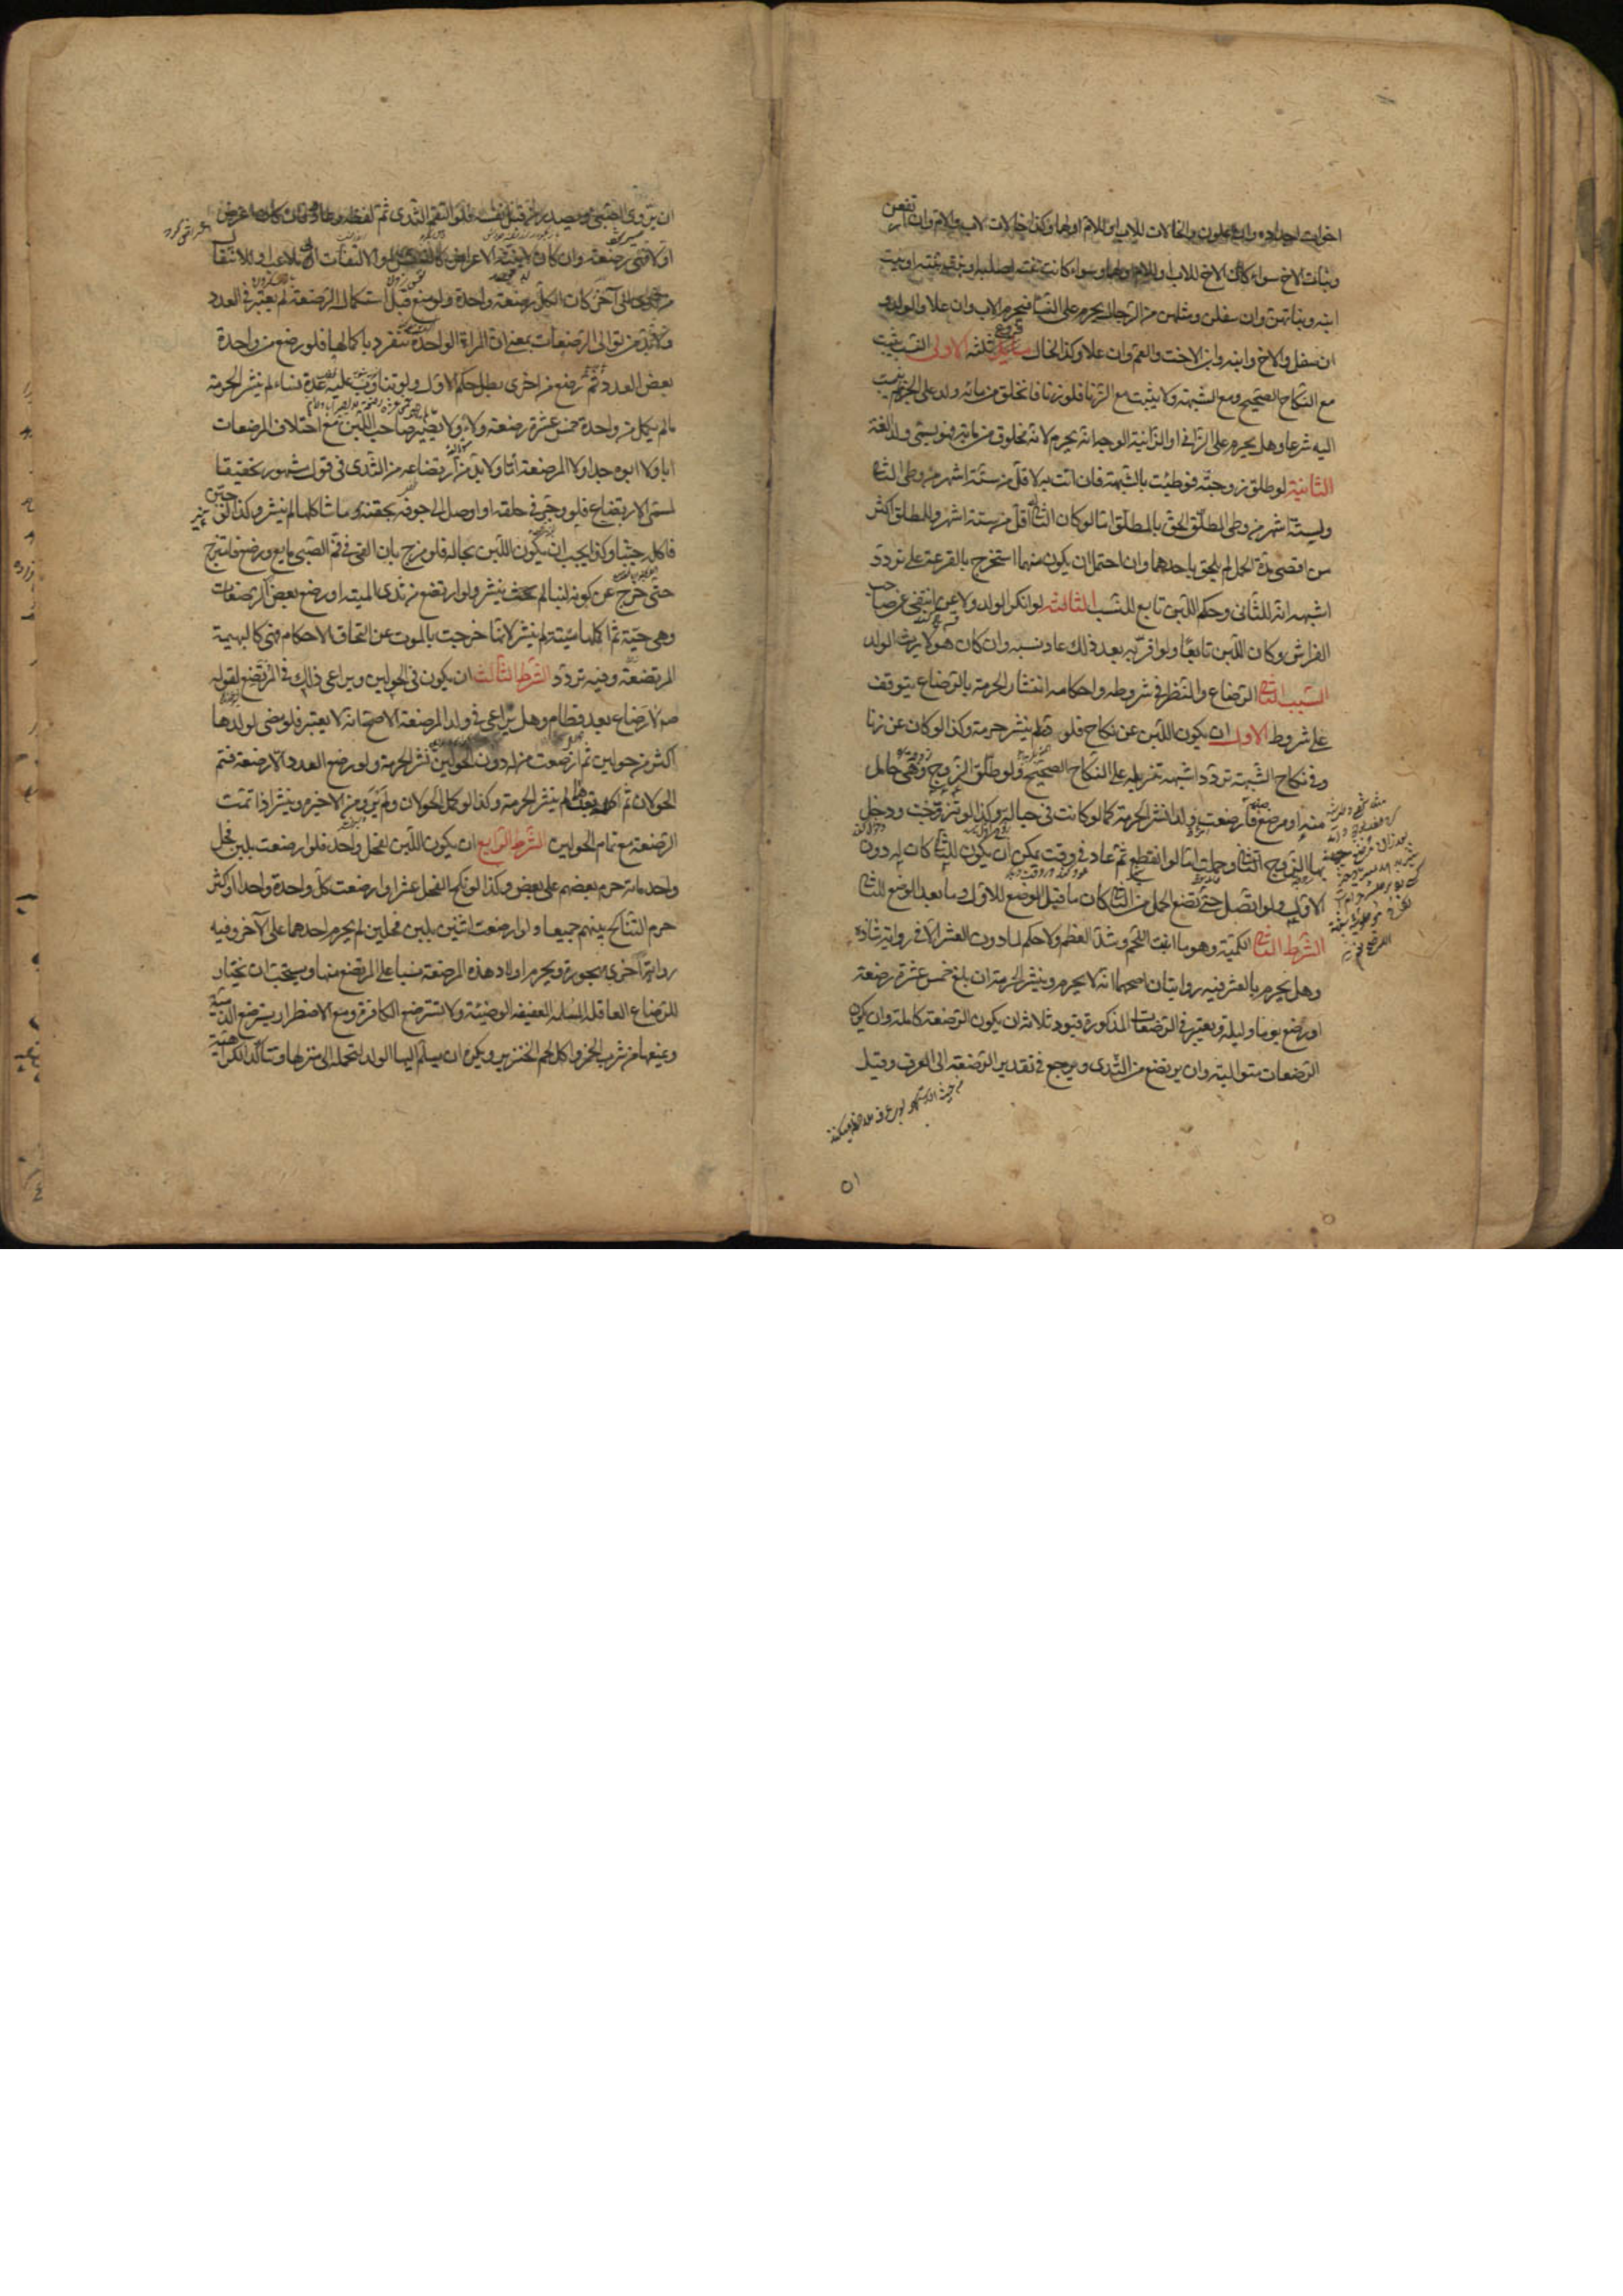 اخوات اجداده وان علون والخالات للاب او للام او لهما وكذا خالات الاب والام وان ارتفعن
وبنات الاخ سواء كان الاخ للاب او للام او لهما وسواء كانت بنته لصلبه او بنت بنته او بنت
ابنه وبناتهن وان سفلن ومثلهن من الرجال يحرم على النساء فيحرم الاب وان علا والولد و
ان سفل والاخ وابنه وابن الاخت والعم وان علا وكذا الخال فروع ثلثه الاولى النسب يثبت
مع النكاح الصحيح ومع الشبهة ولا يثبت مع الزنا فلو زنا فانخلق من مائه ولد على الجزم لم ينسب
اليه شرعا وهل يحرم على الزاني او الزانية الوجه انه يحرم لانه مخلوق من مائه فهو يسمى ولدا لغة
الثانية لو طلق زوجته فوطئت بالشبهة فان اتت به لاقل من ستة اشهر من وطى الثاني
ولستة اشهر من وطى المطلق الحق بالمطلق اما لو كان الثاني اقل من ستة اشهر وللمطلق اكثر
من اقصى مدة الحمل لم يلحق باحدهما وان احتمل ان يكون منهما استخرج بالقرعة على تردد
اشبهه انه للثاني وحكم اللبن تابع للنسب الثالثة لو انكر الولد ولاعن انتفى عن صاحب
الفراش وكان اللبن تابعا ولو اقر به بعد ذلك عاد نسبه وان كان هو لا يرث الولد
السبب الثاني الرضاع والنظر في شروطه واحكامه انتشار الحرمة بالرضاع يتوقف
على شروط الاول ان يكون اللبن عن نكاح فلو در لم ينشر حرمة وكذا لو كان عن زنا
وفي نكاح الشبهة تردد اشبهه تنزيله على النكاح الصحيح ولو طلق الزوج وهي حامل
منه او مرضع فارضعت ولدا نشر الحرمة كما لو كانت في حباله وكذا لو تزوجت ودخل
بها الزوج الثاني وحملت اما لو انقطع ثم عاد في وقت يمكن ان يكون للثاني كان له دون
الاول ولو اتصل حتى تضع الحمل من الثاني كان ما قبل الوضع للاول وما بعد الوضع للثاني
الشرط الثاني الكمية وهو ما انبت اللحم وشد العظم ولا حكم لما دون العشر الا في رواية شاذة
وهل يحرم بالعشر فيه روايتان اصحهما انه لا يحرم وينشر الحرمة ان بلغ خمس عشرة رضعة
او رضع يوما وليلة ويعتبر في الرضعات المذكورة قيود ثلاثة ان يكون الرضعة كاملة وان يكون
الرضعات متوالية وان يرتضع من الثدى ويرجع في تقدير الرضعة الى العرف وقيل
٥١
ان يروى الصبي ويصدر من قبل نفسه فلو التقم الثدى ثم لفظه وعاد فان كان اعرض
اولا فهى رضعة وان كان لا بنية الاعراض كالنفس او الالتفات الى ملاعب او للانتقال
من ثدى الى آخر كان الكل رضعة واحدة ولو منع قبل استكمال الرضعة لم يعتبر في العدد
ولا بد من توالى الرضعات بمعنى ان المراة الواحدة تنفرد باكمالها فلو رضع من واحدة
بعض العدد ثم رضع من اخرى بطل حكم الاول ولو تناوب عليه عدة نساء لم ينشر الحرمة
ما لم يكمل من واحدة خمس عشرة رضعة ولاء ولا يصير صاحب اللبن مع اختلاف المرضعات
ابا ولا ابوه جدا ولا المرضعة اما ولا بد من ارتضاعه من الثدى في قول مشهور تحقيقا
لمسمى الارتضاع فلو وجر في حلقه او اوصل الى جوفه بحقنة وما شاكلها لم ينشر وكذا لو جبن
فاكله جبنا وكذا يجب ان يكون اللبن بحاله فلو مزج بان القى في فم الصبي مايع ورضع فامتزج
حتى خرج عن كونه لبنا لم ينشر ولو ارتضع من ثدى الميتة او رضع بعض الرضعات
وهي حية ثم اكملها ميتة لم ينشر لانها خرجت بالموت عن التحاق الاحكام فهى كالبهيمة
المرتضعة وفيه تردد الشرط الثالث ان يكون في الحولين ويراعى ذلك في المرتضع لقوله
ص لا رضاع بعد فطام وهل يراعى في ولد المرضعة الاصح انه لا يعتبر فلو مضى لولدها
اكثر من حولين ثم ارضعت من له دون الحولين نشر الحرمة ولو رضع العدد الا رضعة فتم
الحولان ثم اكمله بعدهما لم ينشر الحرمة وكذا لو كمل الحولان ولم يرو من الاخيرة وينشر اذا تمت
الرضعة مع تمام الحولين الشرط الرابع ان يكون اللبن لفحل واحد فلو ارضعت بلبن فحل
واحد مائة حرم بعضهم على بعض وكذا لو نكح الفحل عشرا وارضعت كل واحدة واحدا او اكثر
حرم التناكح بينهم جميعا ولو ارضعت اثنين بلبن فحلين لم يحرم احدهما على الآخر وفيه
رواية اخرى مهجورة ويحرم اولاد هذه المرضعة نسبا على المرتضع منها ويستحب ان يختار
للرضاع العاقلة المسلمة العفيفة الوضيئة ولا تسترضع الكافرة ومع الاضطرار يسترضع الذمية
ويمنعها من شرب الخمر واكل لحم الخنزير ويكره ان يسلم اليها الولد لتحمله الى منزلها وتتاكد الكراهية